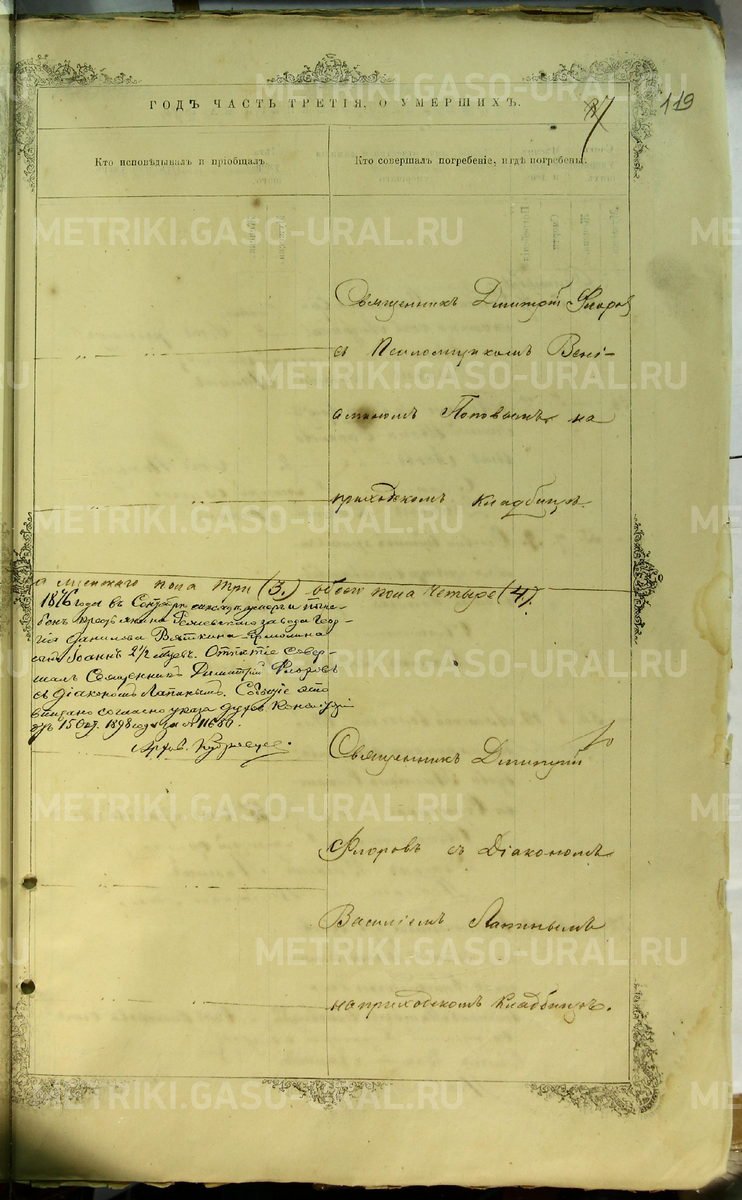 ГОДЪ ЧАСТЬ ТРЕТІЯ, О УМЕРШИХЪ.
119
Кто исповѣдывалъ и пріобщалъ.
Кто совершалъ погребеніе, и гдѣ погребены.
Священникъ Димитрій Флоровъ
съ Псаломщикомъ Вені-
аминомъ Поповымъ на
приходскомъ кладбищѣ.
а женскаго пола три (3.) обоего пола четыре (4).
1876 года въ
Георгія Данилова Вяткина
сынъ Іоаннъ 2 1/2 Отпѣтіе совер-
шалъ Священникъ Димитрій Флоровъ
съ Діакономъ Лапинымъ. Событіе это
вписано согласно указа Духов. Консисторіи
отъ 15 Окт. 1898 года за № 11680.
Священникъ Димитрій
Флоровъ съ Діакономъ
Василіемъ Лапинымъ
на приходскомъ кладбищѣ.
METRIKI.GASO-URAL.RU